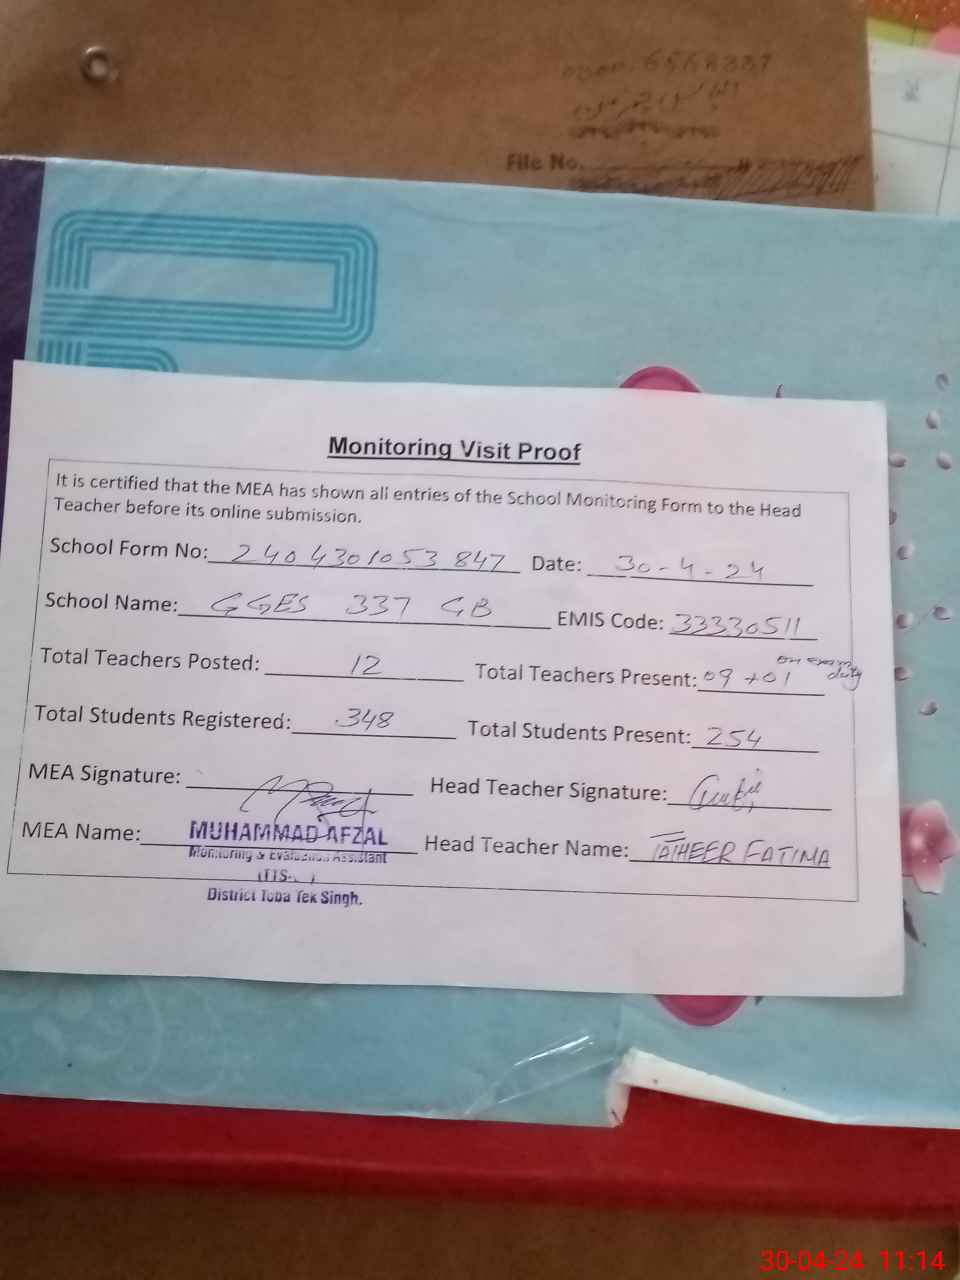 6568337
File No.
Monitoring Visit Proof
It is certified that the MEA has shown all entries of the School Monitoring Form to the Head
Teacher before its online submission.
School Form No: 2404301053847 Date: 30-4-24
School Name: GGES 337 GB EMIS Code: 33330511
Total Teachers Posted: 12 Total Teachers Present: 09+01 on exam duty
Total Students Registered: 348 Total Students Present: 254
MEA Signature: Head Teacher Signature:
MEA Name: MUHAMMAD AFZAL Head Teacher Name: TATHEER FATIMA
Monitoring & Evaluation Assistant
District Toba Tek Singh.
30-04-24 11:14